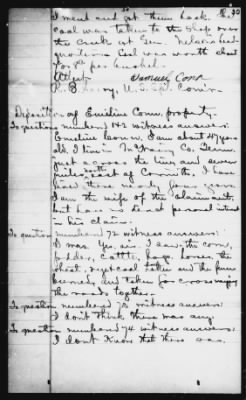 I went and at them back. The
coal was taken to the shop over
the Creek at Gen. Nelson's head
quarters. Coal was worth about
per bushel.
Attest Samuel Conn
R. B. U.S. Spl. Comr.
Deposition of Emiline Conn. property.
To question number 1 & 2 witness answers:
Emiline Conn. I am about 47 years
old. I live in McNairy Co. Tenn.
just across the line and seven
miles north east of Corinth. I have
lived there nearly four years
I am the wife of the claimant,
but have no personal interest
in his claim.
To question number 72 witness answers:
I was. Yes, sir. I saw the corn,
fodder, cattle, hogs, horses, the
wheat, oats, coal taken and the fence
burned, and taken for crossways
the roads together.
To question number 73 witness answers:
I don't think there was any.
To question number 74 witness answers:
I don't know that there was.